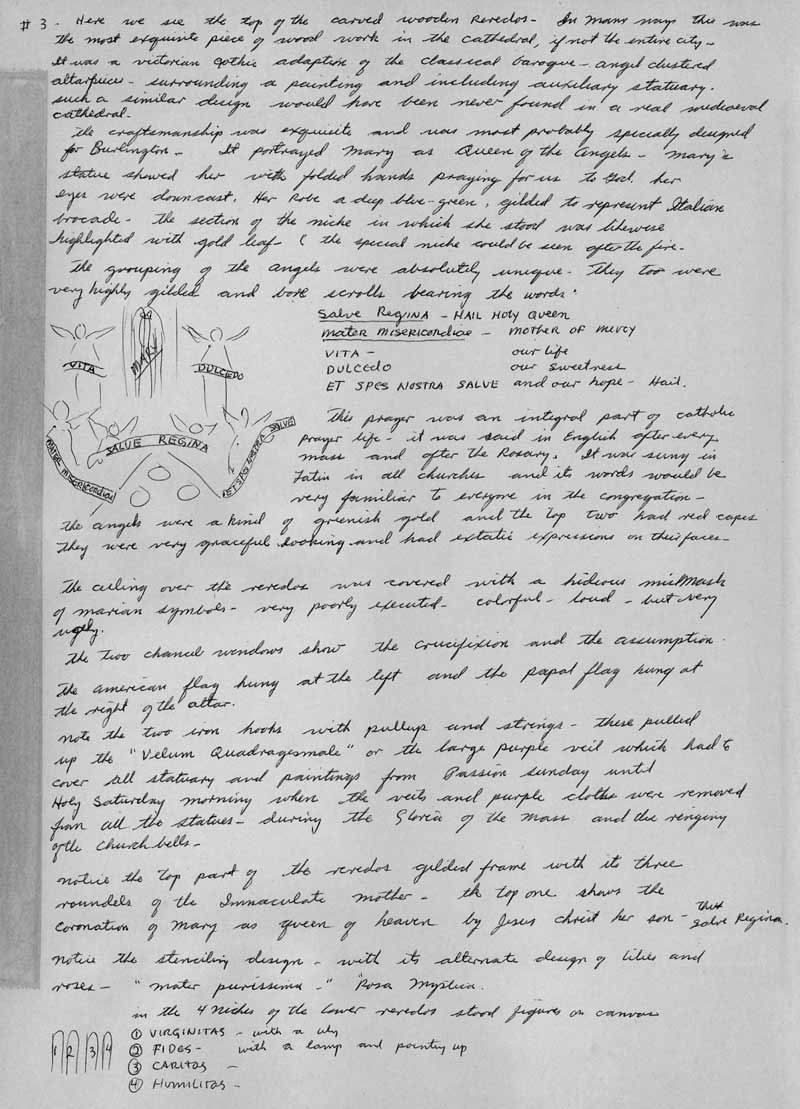 # 3. Here we see the top of the carved wooden Reredos - In many ways this was
the most exquisite piece of wood work in the cathedral, if not the entire city -
It was a victorian Gothic adaption of the classical baroque - angel clustered
altarpieces - surrounding a painting and including auxiliary statuary.
such a similar design would have been never found in a real mediaeval
cathedral.
The craftsmanship was exquisite and was most probably specially designed
for Burlington - It portrayed Mary as Queen of the Angels - Mary's
statue showed her with folded hands praying for us to God. her
eyes were downcast. Her Robe a deep blue-green, gilded to represent Italian
brocade - the section of the niche in which she stood was likewise
highlighted with gold leaf ( the special niche could be seen after the fire -
The grouping of the angels were absolutely unique - They too were
very highly gilded and bore scrolls bearing the words:
Salve Regina - HAIL HOLY QUEEN
MATER MISERICORDIAE - MOTHER OF MERCY
VITA - our life
DULCEDO our sweetness
ET SPES NOSTRA SALVE and our hope - Hail.
VITA
MARY
DULCEDO
MATER MISERICORDIAE
SALVE REGINA
ET SPES NOSTRA SALVE
This prayer was an integral part of catholic
prayer life - it was said in English after every
mass and after the Rosary. It was sung in
Latin in all churches and its words would be
very familiar to everyone in the congregation -
the angels were a kind of greenish gold and the top two had red capes
They were very graceful looking and had extatic expressions on their faces -
The ceiling over the reredos was covered with a hideous mishmash
of marian symbols - very poorly executed - colorful - loud - but very
ugly.
The two chancel windows show the Crucifixion and the assumption.
The american flag hung at the left and the papal flag hung at
the right of the altar.
Note the two iron hooks with pulleys and strings - these pulled
up the "Velum Quadragesmale" or the large purple veil which had to
cover all statuary and paintings from Passion Sunday until
Holy Saturday morning when the veils and purple cloths were removed
from all the statues - during the Gloria of the Mass and the ringing
of the Church bells -
notice the top part of the reredos gilded frame with its three
roundels of the Immaculate Mother - the top one shows the
Coronation of Mary as queen of heaven by Jesus Christ her son - thus Salve Regina.
Notice the stenciling design - with its alternate design of lilies and
roses - "mater purissima -" "Rosa Mystica.
in the 4 Niches of the lower reredos stood figures on canvas
1 2 3 4
① VIRGINITAS - with a lily
② FIDES - with a lamp and pointing up
③ CARITAS -
④ HUMILITAS -